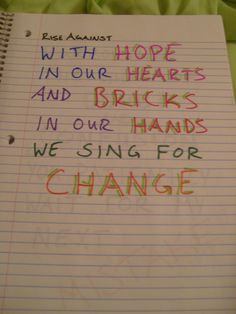 RISE AGAINST
WITH HOPE
IN OUR HEARTS
AND BRICKS
IN OUR HANDS
WE SING FOR
CHANGE